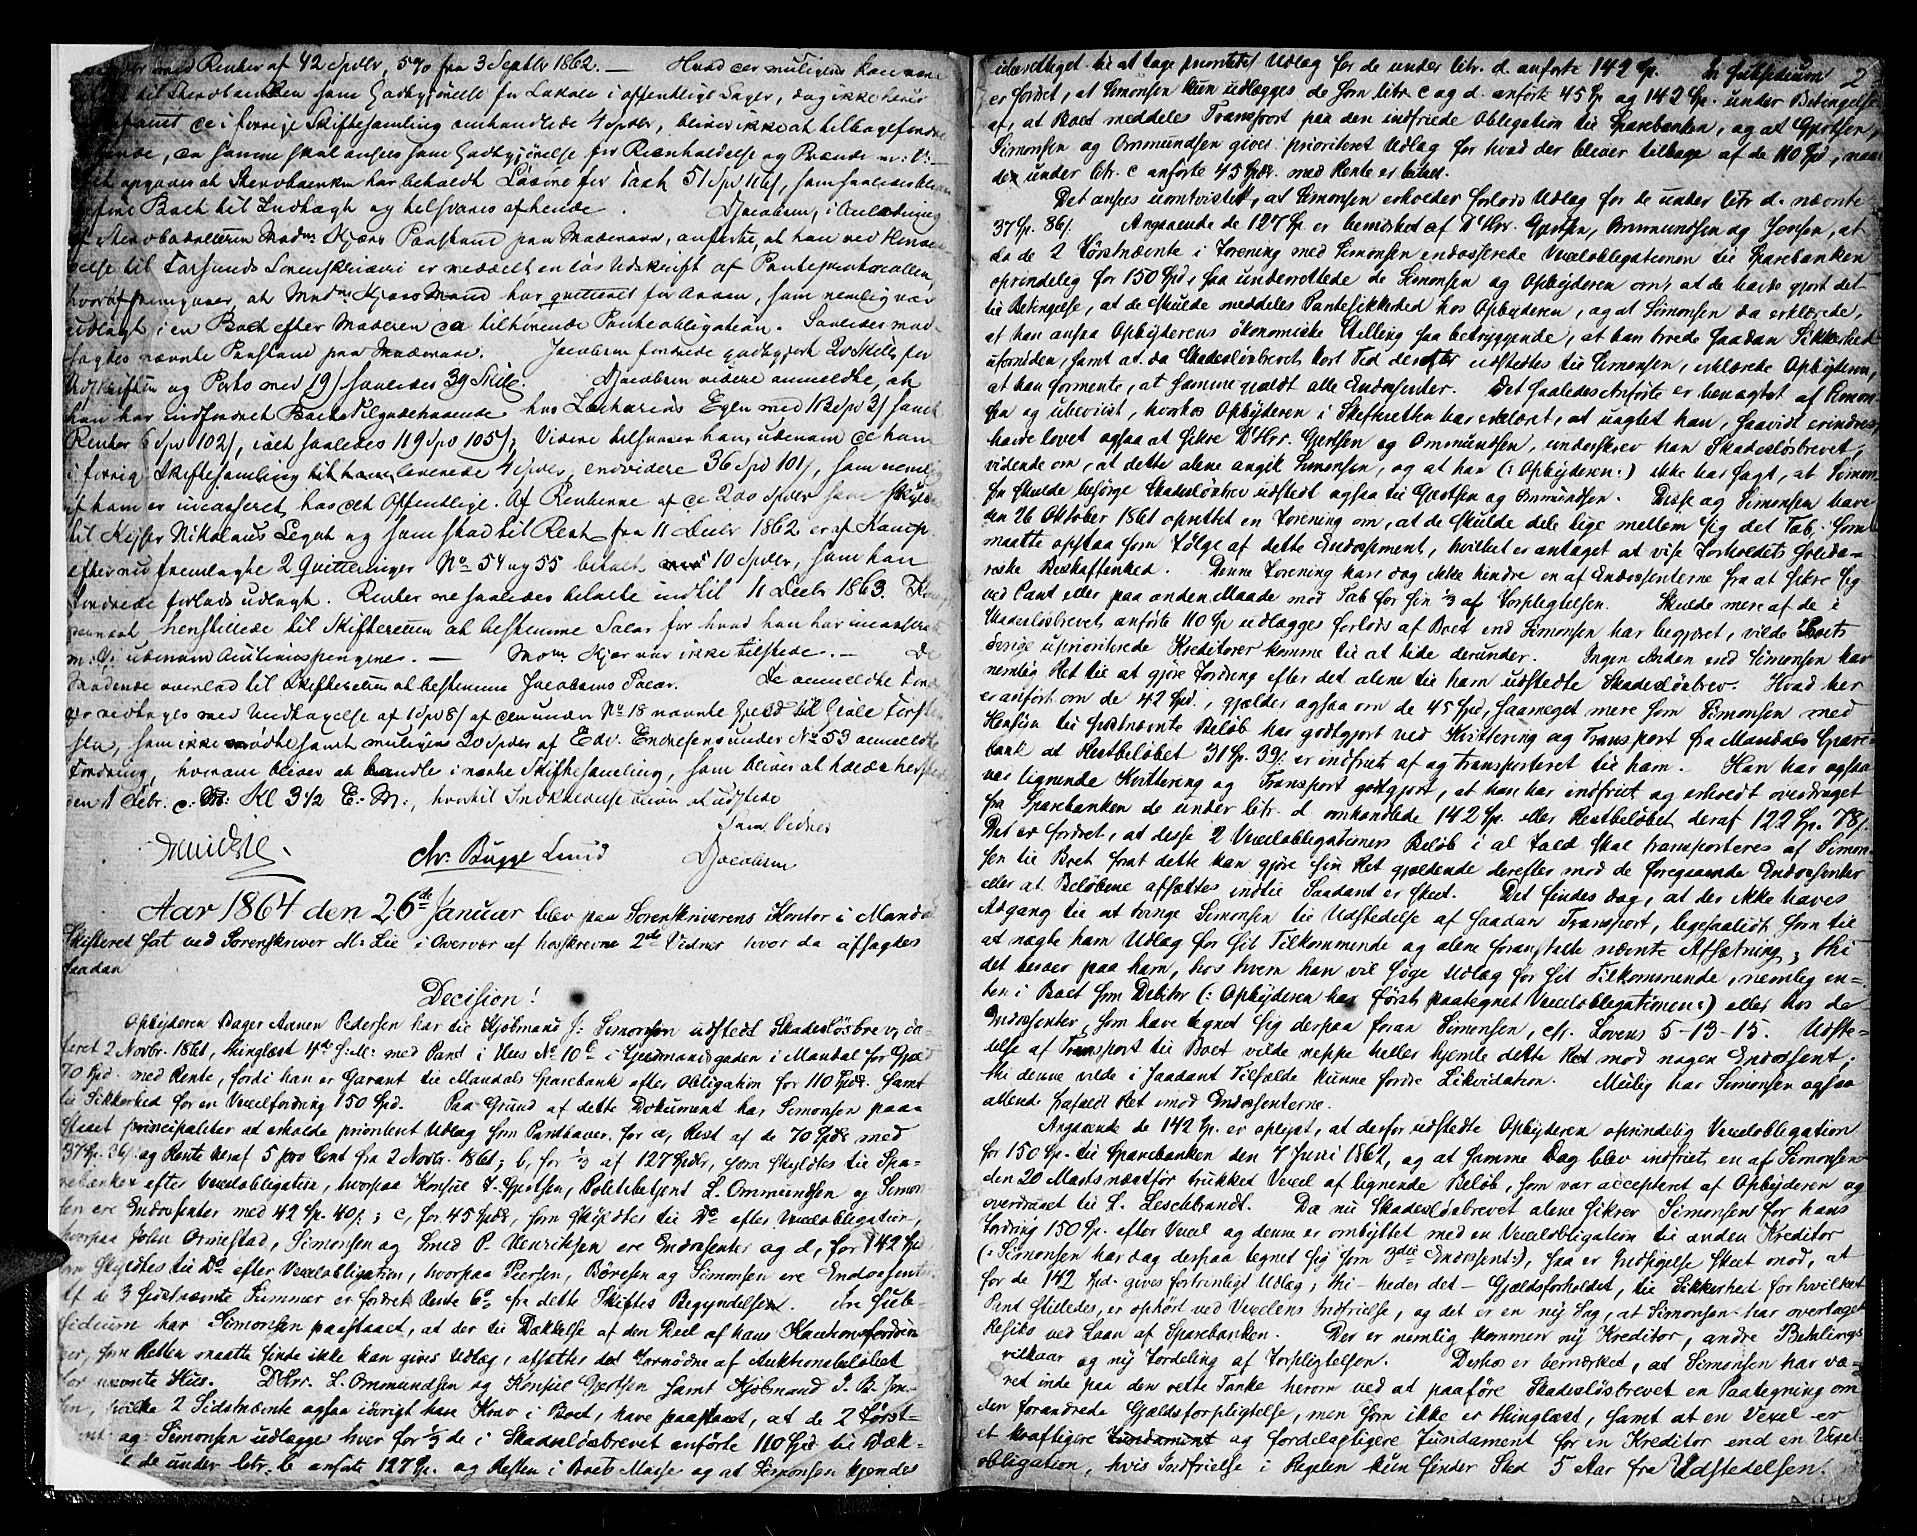 med Renter af 42 Spdlr, 5% fra 3 Septbr 1862. — Hvad der muligens kan være
til Stervboenken som Godtgjørelse for Lokale i offentlige Sager, dog ikke herif
ce i forrige Skiftesamling omhandlede 4 Spdlr, bliver ikke at tilbagefordre
da samme skal ansees som Godtgjørelse for Reenholdelse og Brænde m: V:—
opgaves at Stervboenken har beholdt Løsøre for Taxt 51 Spd 116 ß, som saaledes bliver
Boet til Indtægt og tilsvares af hende. Djacobsen, i Anledning
Madm Kjærs Paastand paa Mødrenearv, anførte, at han ved Henven-
delse til Farsunds Sorenskriveri er meddelt en løs Udskrift af Panteprotocollen,
hvoraf fremgaaer, at Madm Kjærs Mand har qvitteret for Arven, som nemlig var
udlagt i en Boet efter Moderen ca tilhørende Panteobligation. Saaledes mod-
sagdes nævnte Paastand paa Mødrenearv. Jacobsen fordrede godtgjort 20 Skill for
Udskriften og Porto med 19 ß saaledes 39 Skill. Djacobsen videre anmeldte, at
han har indfordret Boets Tilgodehavende hos Zacharias Egen med 112 Spd 3 ß samt
Renter 6 Spd 102 ß, ialt saaledes 119 Spd 105 ß; Videre tilsvarer han, udenom de ham
i forrige Skiftesamling til ham leverede 4 Spdlr, endvidere 36 Spd 101 ß, som nemlig
af ham er incasseret hos det Offentlige. Af Renterne af de 200 Spdlr som skyldes
til Kjøbm Nikolaus Legat og som stod til Rest fra 11 Decbr 1862 er af Kamp
efter nu fremlagte 2 Qvitteringer No 54 og 55 betalt 10 Spdlr, som han
fordrede forlods udlagt. Renter ere saaledes betalte indtil 11 Decbr 1863.
henstillede til Skifteretten at bestemme Salær for hvad han har incasseret
m: V: udenom Auctionspengene. — Mom Kjær var ikke tilstede. — De
Mødende overlod til Skifteretten at bestemme Jacobsens Salær. De anmeldte Ford-
er vedtages med Undtagelse af 1 Spd 8 ß af den under No 18 nævnte Gjeld til Giøle Torsten
som ikke mødte samt muligens 20 Spdlr af Edv. Endresens under No 53 anmeldte
Fordring, hvorom bliver at handle i næste Skiftesamling, som bliver at holde hersteds
den 1 Febr. c. Kl 3½ E: M:, hvortil Indkaldelse bliver at udstede
Som Vidner
Chr Bugge Lund Djacobsen
Aar 1864 den 26de Januar blev paa Sorenskriverens Kontor i Mandal
Skifteret sat ved Sorenskriver M: Lie i Overvær af hosskrevne 2de Vidner hvor da afsagdes
saadan
Decision!
Opbyderen Bager Aanen Pedersen har til Kjøbmand J: Simonsen udstedt Skadesløsbrev, da-
teret 2 Novbr. 1861, thinglæst 4de s: M: med Pant i Hus No 10 C i Gjedmansgaden i Mandal for Gjæld
70 Spd. med Rente, fordi han er Garant til Mandals Sparebank efter Obligation for 110 Spdlr. samt
til Sikkerhed for en Vexelfordring 150 Spd. Paa Grund af dette Dokument har Simonsen paa-
staaet principaliter at erholde prioritert Udlæg som Panthaver for a, Rest af de 70 Spdlr med
37 Sp. 86 ß og Rente deraf 5 pro Cent fra 2 Novbr. 1861; b, for ⅓ af 127 Spdlr, som skyldtes til Spa-
rebanken efter Vexelobligation, hvorpaa Konsul T. Gjertsen, Politibetjent L. Ommundsen og Simon-
sen ere Endossenter med 42 Sp. 40 ß; c, for 45 Spdlr, som skyldtes til Do efter Vexelobligation,
hvorpaa John Ormestad, Simonsen og Smed P. Henriksen ere Endossenter og d, for 142 Spd
som skyldtes til Do efter Vexelobligation, hvorpaa Peersen, Børresen og Simonsen ere Endossenter.
Af de 3 sidstnævnte Summer er fordret Rente 6% fra dette Skiftes Begyndelse. In Sub-
sidium har Simonsen paastaaet, at der til Dækkelse af den Deel af hans Kautionsfordrin-
ger, som Retten maatte finde ikke kan gives Udlæg, afsættes det Fornødne af Auktionsbeløbet
for nævnte Huus. DHrr. L. Ommundsen og Konsul Gjertsen samt Kjøbmand J. B. Jon-
sen, hvilke 2 Sidstnævnte ogsaa iøvrigt have Krav i Boet, have paastaaet, at de 2 Først-
nævnte og Simonsen udlægges hver for ⅓ de i Skadesløsbrevet anførte 110 Spd til Dæk-
de under litr. b anførte 127 Sp. og Resten i Boets Masse og at Simonsen kjendes
2
uberettiget til at tage prioritet Udlæg for de under litr. d. anførte 142 Sp. In subsidium
er fordret, at Simonsen kun udlægges de som litr. c og d. anførte 45 Sp og 142 Sp. under Betingelse
af, at Boet meddeles Transport paa den indfriede Obligation til Sparebanken, og at Gjertsen,
Simonsen og Ommundsen gives prioriteret Udlæg for hvad der bliver tilbage af de 110 Spd, naar
de under litr. c anførte 45 Spdlr. med Rente er betalt.
Det ansees utvivlsomt, at Simonsen erholder forlods Udlæg for de under litr d. nævnte
37 Sp. 86 ß. Angaaende de 127 Sp. er bemærket af DHrr. Gjertsen, Ommundsen og Jonsen, at
da de 2 Førstnævnte i Forening med Simonsen endosserede Vexelobligationen til Sparebanken
oprindelig for 150 Spd, saa underrettede de Simonsen og Opbyderen om, at de havde gjort det
til Betingelse, at de skulde meddeles Pantesikkerhed hos Opbyderen, og at Simonsen da erklærede,
at han ansaa Opbyderens økonomiske Stilling saa betryggende, at han troede saadan Sikkerhed
ufornøden, samt at da Skadesløsbrevet kort Tid derefter udstedtes til Simonsen, erklærede Opbyderen,
at han formente, at samme gjældt alle Endossenter. Det saaledes Anførte er benægtet af Simon-
sen og ubeviist, hvorhos Opbyderen i Skifteretten har erklæret, at uagtet han, saavidt erindres,
havde lovet ogsaa at sikre DHrr. Gjertsen og Ommundsen, underskrev han Skadesløsbrevet,
vidende om, at dette alene angik Simonsen, og at han (: Opbyderen:) ikke har sagt, at Simon-
sen skulde besørge Skadesløsbrev udstedt ogsaa til Gjertsen og Ommundsen. Disse og Simonsen have
den 26 Oktober 1861 oprettet en Forening om, at de skulde dele lige mellem sig det Tab, som
maatte opstaa som Følge af dette Endossement, hvilket er antaget at vise Forholdets solida-
riske Beskaffenhed. Denne Forening kan dog ikke hindre en af Endossenterne fra at sikre sig
ved Pant eller paa anden Maade mod Tab for sin ⅓ af Forpligtelsen. Skulde mere af de i
Skadesløsbrevet anførte 110 Sp udlægges forlods af Boet end Simonsen har begjæret, vilde Boets
øvrige uprioriterede Kreditorer komme til at lide derunder. Ingen Anden end Simonsen har
nemlig Ret til at gjøre Fordring efter det alene til ham udstedte Skadesløsbrev. Hvad her
er anført om de 42 Spd., gjælder ogsaa om de 45 Spd, saameget mere som Simonsen med
Hensyn til sidstnævnte Beløb har godtgjort ved Kvittering og Transport fra Mandals Spare-
bank at Restbeløbet 31 Sp. 39 ß. er indfriet af og transporteret til ham. Han har ogsaa
ved lignende Kvittering og Transport godtgjort, at han har indfriet og erholdt overdraget
fra Sparebanken de under litr. d omhandlede 142 Sp. eller Restbeløbet deraf 122 Sp. 78 ß.
Det er fordret, at disse 2 Vexelobligationers Beløb i al Fald skal transporteres af Simon-
sen til Boet forat dette kan gjøre sin Ret gjældende derefter mod de foregaaende Endossenter
eller at Beløbene afsættes indtil Saadant er skeet. Det findes dog, at der ikke haves
Adgang til at tvinge Simonsen til Udstedelse af saadan Transport, ligesaalidt som til
at nægte ham Udlæg for sit Tilkommende og alene foranstalte nævnte Afsætning; thi
det beroer paa ham, hos hvem han vil søge Udlæg for sit Tilkommende, nemlig en-
ten i Boet som Debitor (: Opbyderen har først paategnet Vexelobligationen:) eller hos de
Endossenter, som have tegnet sig derpaa foran Simonsen, cfr. Lovens 5-13-15. Udste-
delse af Transport til Boet vilde neppe heller hjemle dette Ret mod nogen Endossent;
thi denne vilde i saadant Tilfælde kunne fordre Likvidation. Mulig har Simonsen ogsaa
allerede frafaldt Ret imod Endossenterne.
Angaaende de 142 Sp. er oplyst, at derfor udstedte Opbyderen oprindelig Vexelobligation
for 150 Sp. til Sparebanken den 7 Juni 1862, og at samme Dag blev indfriet en af Simonsen
den 20 Marts næstfør trukket Vexel af lignende Beløb, som var accepteret af Opbyderen og
overdraget til L. Leschbrandt. Da nu Skadesløsbrevet alene sikrer Simonsen for hans
Fordring 150 Sp. efter Vexel og denne er ombyttet med en Vexelobligation til anden Kreditor
(: Simonsen har dog derpaa tegnet sig som 3die Endossent:), saa er Indsigelse skeet mod, at
for de 142 Spd. gives fortrinligt Udlæg; thi — hedes det — Gjældsforholdet, til Sikkerhed for hvilket
Pant stilledes, er ophørt ved Vexelens Indfrielse, og det er en ny Sag, at Simonsen har overtaget
Risiko ved Laan af Sparebanken. Der er nemlig kommen ny Kreditor, andre Betalings-
vilkaar og ny Fordeling af Forpligtelsen. Derhos er bemærket, at Simonsen har væ-
ret inde paa den rette Tanke herom ved at paaføre Skadesløsbrevet en Paategning om
den forandrede Gjældsforpligtelse, men som ikke er thinglæst, samt at en Vexel er
et kraftigere Fundament og fordelagtigere Fundament for en Kreditor end en Vexel-
obligation, hvis Indfrielse i Reglen kun finder Sted 5 Aar fra Udstedelsen.